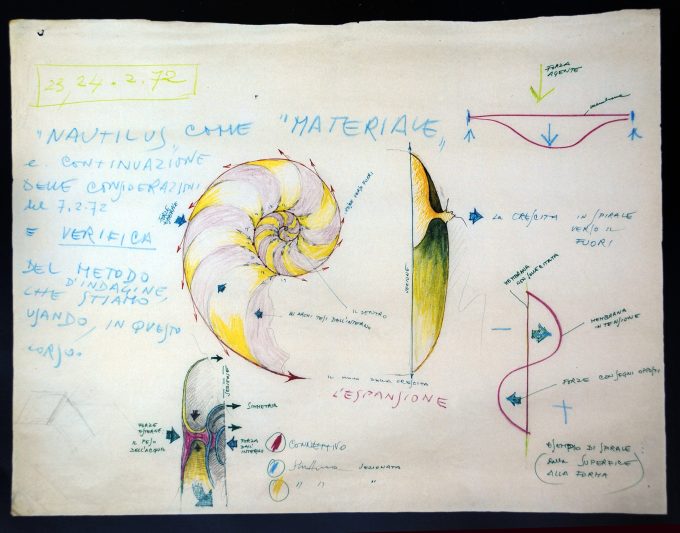 23, 24 • 2. 72
"NAUTILUS„ COME "MATERIALE„
e CONTINUAZIONE
DELLE CONSIDERAZIONI
del 7.2.72
E VERIFICA
DEL METODO
D'INDAGINE,
CHE STIAMO
USANDO, IN QUESTO
CORSO.
FORZA
AGENTE
membrana
FORZE
ESTERNE
LA CRESCITA IN SPIRALE
VERSO IL
FUORI
SEZIONE
IL CENTRO
GLI ARCHI TESI DALL'INTERNO
DELLA CRESCITA
L'ESPANSIONE
MEMBRANA
MEMBRANA
IN TENSIONE
FORZE CON SEGNI OPPOSTI
ESEMPIO DI SPIRALE
DALLA SUPERFICE
ALLA FORMA
SEZIONE
SIMMETRIA
FORZE
ESTERNE
IL PESO
DELL'ACQUA
FORZA
DALL'
INTERNO
CONNETTIVO
Struttura SEZIONATA
" " "